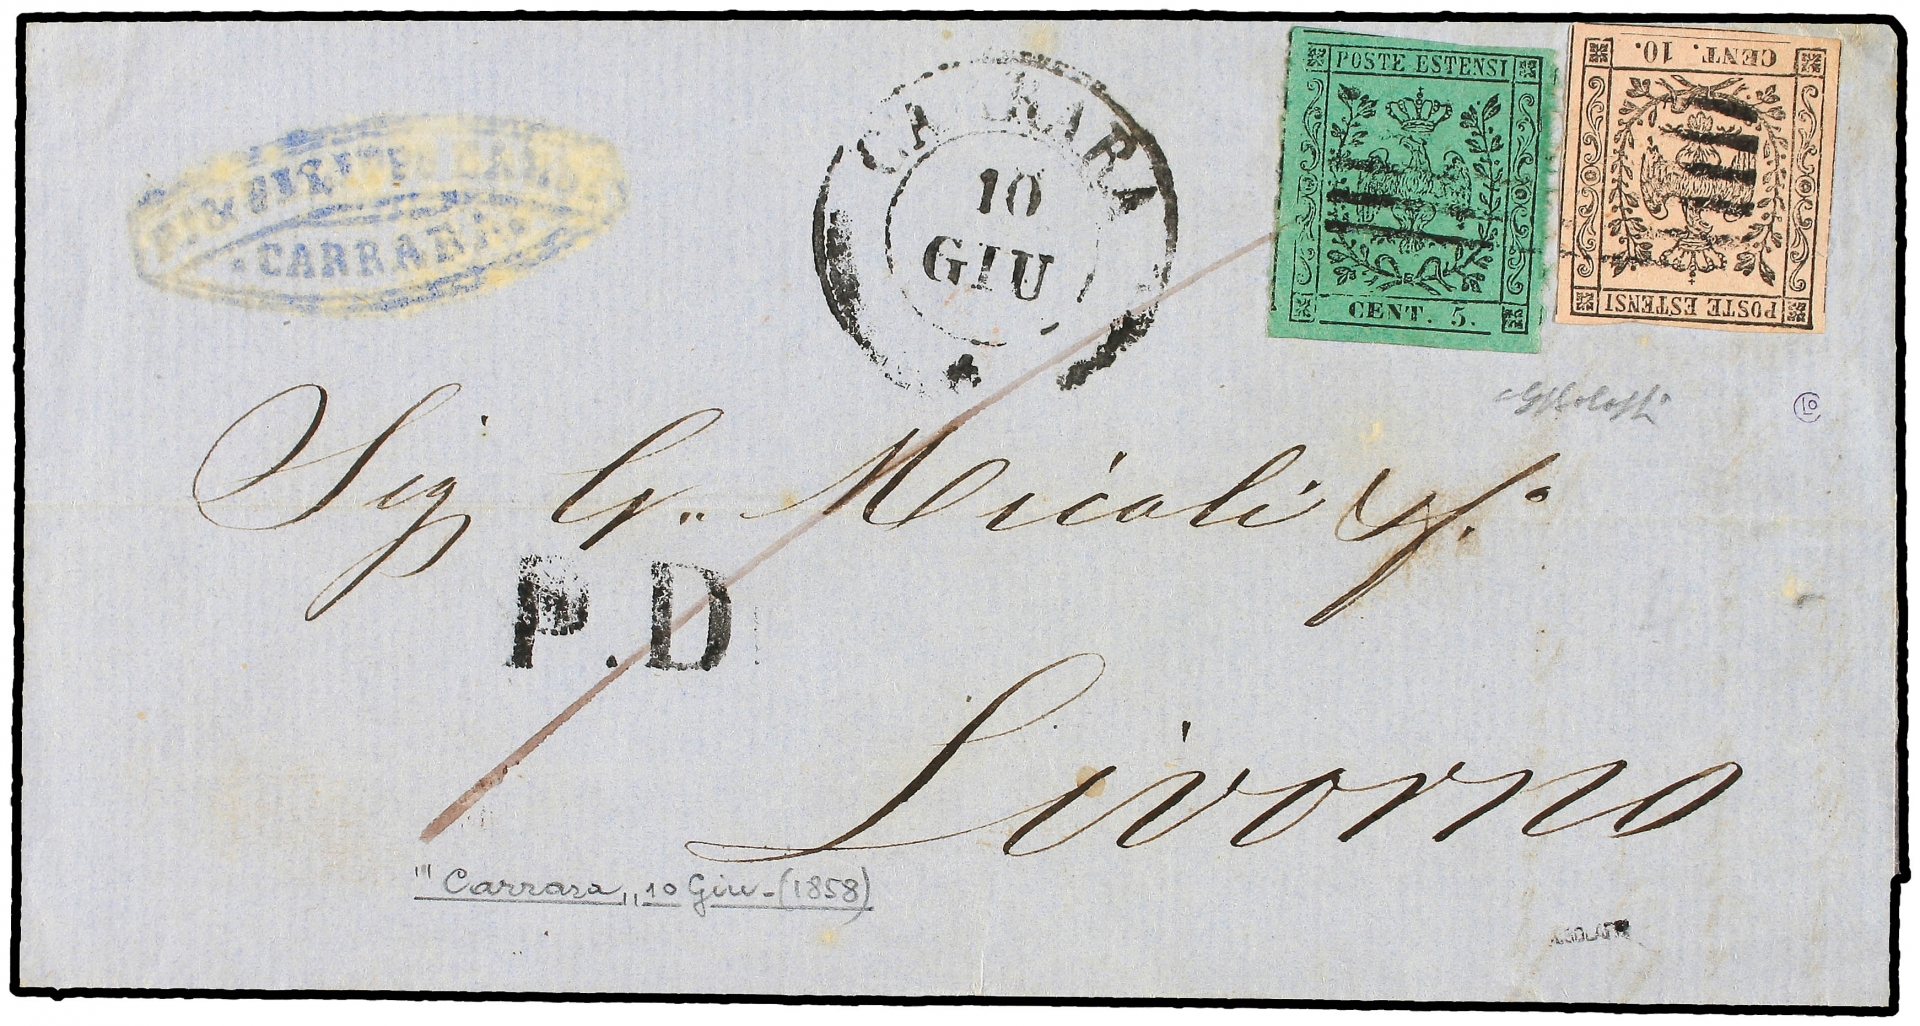 CARRARA
10
GIU
POSTE ESTENSI
CENT. 5.
CENT. 10.
POSTE ESTENSI
CARRARA.
10
Sig G. Micali
P.D
Livorno
"Carrara„ 10 Giu - (1858)